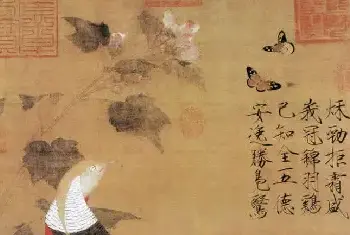 秋勁拒霜盛
峨冠錦羽雞
已知全五德
安逸勝鳧鷖